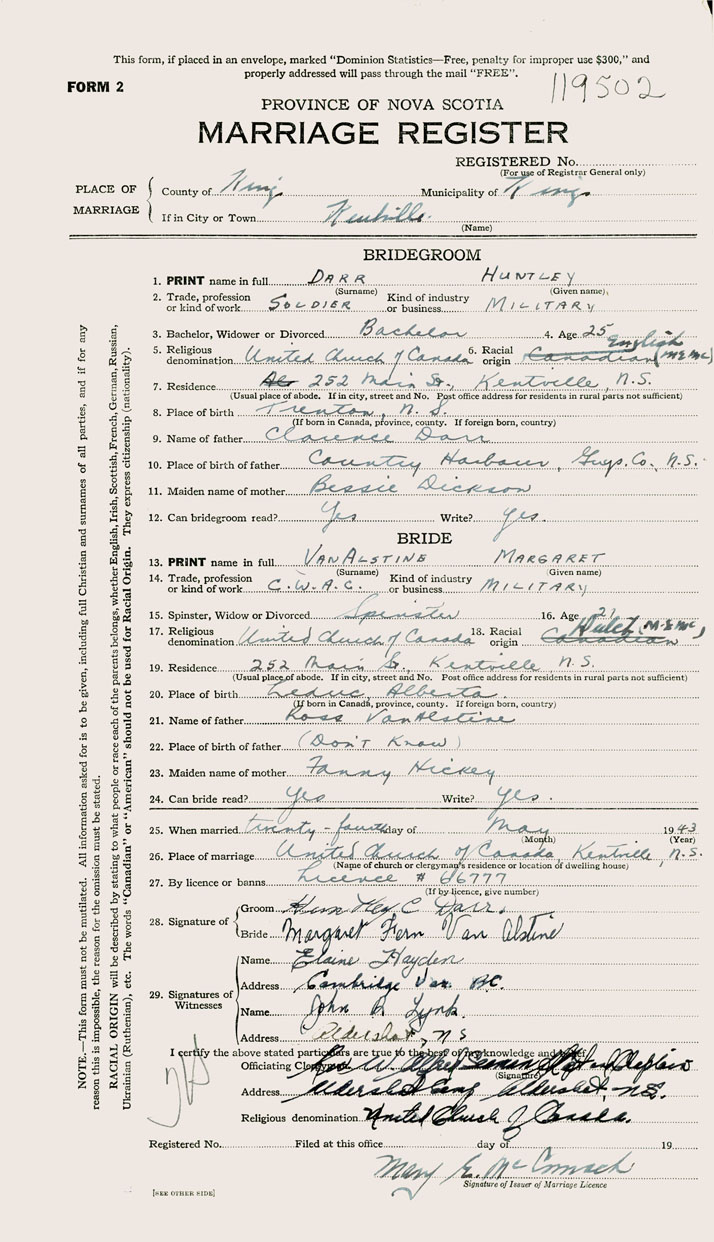 This form, if placed in an envelope, marked "Dominion Statistics—Free, penalty for improper use $300," and
properly addressed will pass through the mail "FREE".
FORM 2
119502
PROVINCE OF NOVA SCOTIA
MARRIAGE REGISTER
REGISTERED No.
(For use of Registrar General only)
PLACE OF MARRIAGE
County of Kings Municipality of Kings
If in City or Town Kentville
(Name)
BRIDEGROOM
1. PRINT name in full DARR HUNTLEY
(Surname) (Given name)
2. Trade, profession or kind of work SOLDIER Kind of industry or business MILITARY
3. Bachelor, Widower or Divorced Bachelor 4. Age 25
5. Religious denomination United Church of Canada 6. Racial origin Canadian English
7. Residence 252 Main St., Kentville, N.S.
(Usual place of abode. If in city, street and No. Post office address for residents in rural parts not sufficient)
8. Place of birth Trenton, N.S.
(If born in Canada, province, county. If foreign born, country)
9. Name of father Clarence Darr
10. Place of birth of father Country Harbour, Guys. Co., N.S.
11. Maiden name of mother Bessie Dickson
12. Can bridegroom read? Yes Write? Yes.
BRIDE
13. PRINT name in full VANALSTINE MARGARET
(Surname) (Given name)
14. Trade, profession or kind of work C.W.A.C. Kind of industry or business MILITARY
15. Spinster, Widow or Divorced Spinster 16. Age 21
17. Religious denomination United Church of Canada 18. Racial origin Canadian Dutch
19. Residence 252 Main St., Kentville N.S.
(Usual place of abode. If in city, street and No. Post office address for residents in rural parts not sufficient)
20. Place of birth Leduc, Alberta.
(If born in Canada, province, county. If foreign born, country)
21. Name of father Ross VanAlstine
22. Place of birth of father (Don't Know)
23. Maiden name of mother Fanny Hickey
24. Can bride read? Yes Write? Yes.
25. When married twenty-fourth day of May 1943
(Month) (Year)
26. Place of marriage United Church of Canada, Kentville, N.S.
(Name of church or clergyman's residence or location of dwelling house)
27. By licence or banns Licence # 66777
(If by licence, give number)
28. Signature of
Groom Huntley C Darr.
Bride Margaret Fern Van Alstine
29. Signatures of Witnesses
Name Elaine Hayden
Address Cambridge Van. BC.
Name John B. Lynk
Address Aldershot, N S
I certify the above stated particulars are true to the best of my knowledge and belief
Officiating Clergyman W. Alfred Capt and Chaplain
(Signature)
Address Aldershot Camp Aldershot, N.S.
Religious denomination United Church of Canada.
Registered No. Filed at this office day of 19
Mary E. McCormack
Signature of Issuer of Marriage Licence
[SEE OTHER SIDE]
NOTE.—This form must not be mutilated. All information asked for is to be given, including full Christian and surnames of all parties, and if for any
reason this is impossible, the reason for the omission must be stated.
RACIAL ORIGIN will be described by stating to what people or race each of the parents belongs, whether English, Irish, Scottish, French, German, Russian,
Ukrainian (Ruthenian), etc. The words "Canadian" or "American" should not be used for Racial Origin. They express citizenship (nationality).